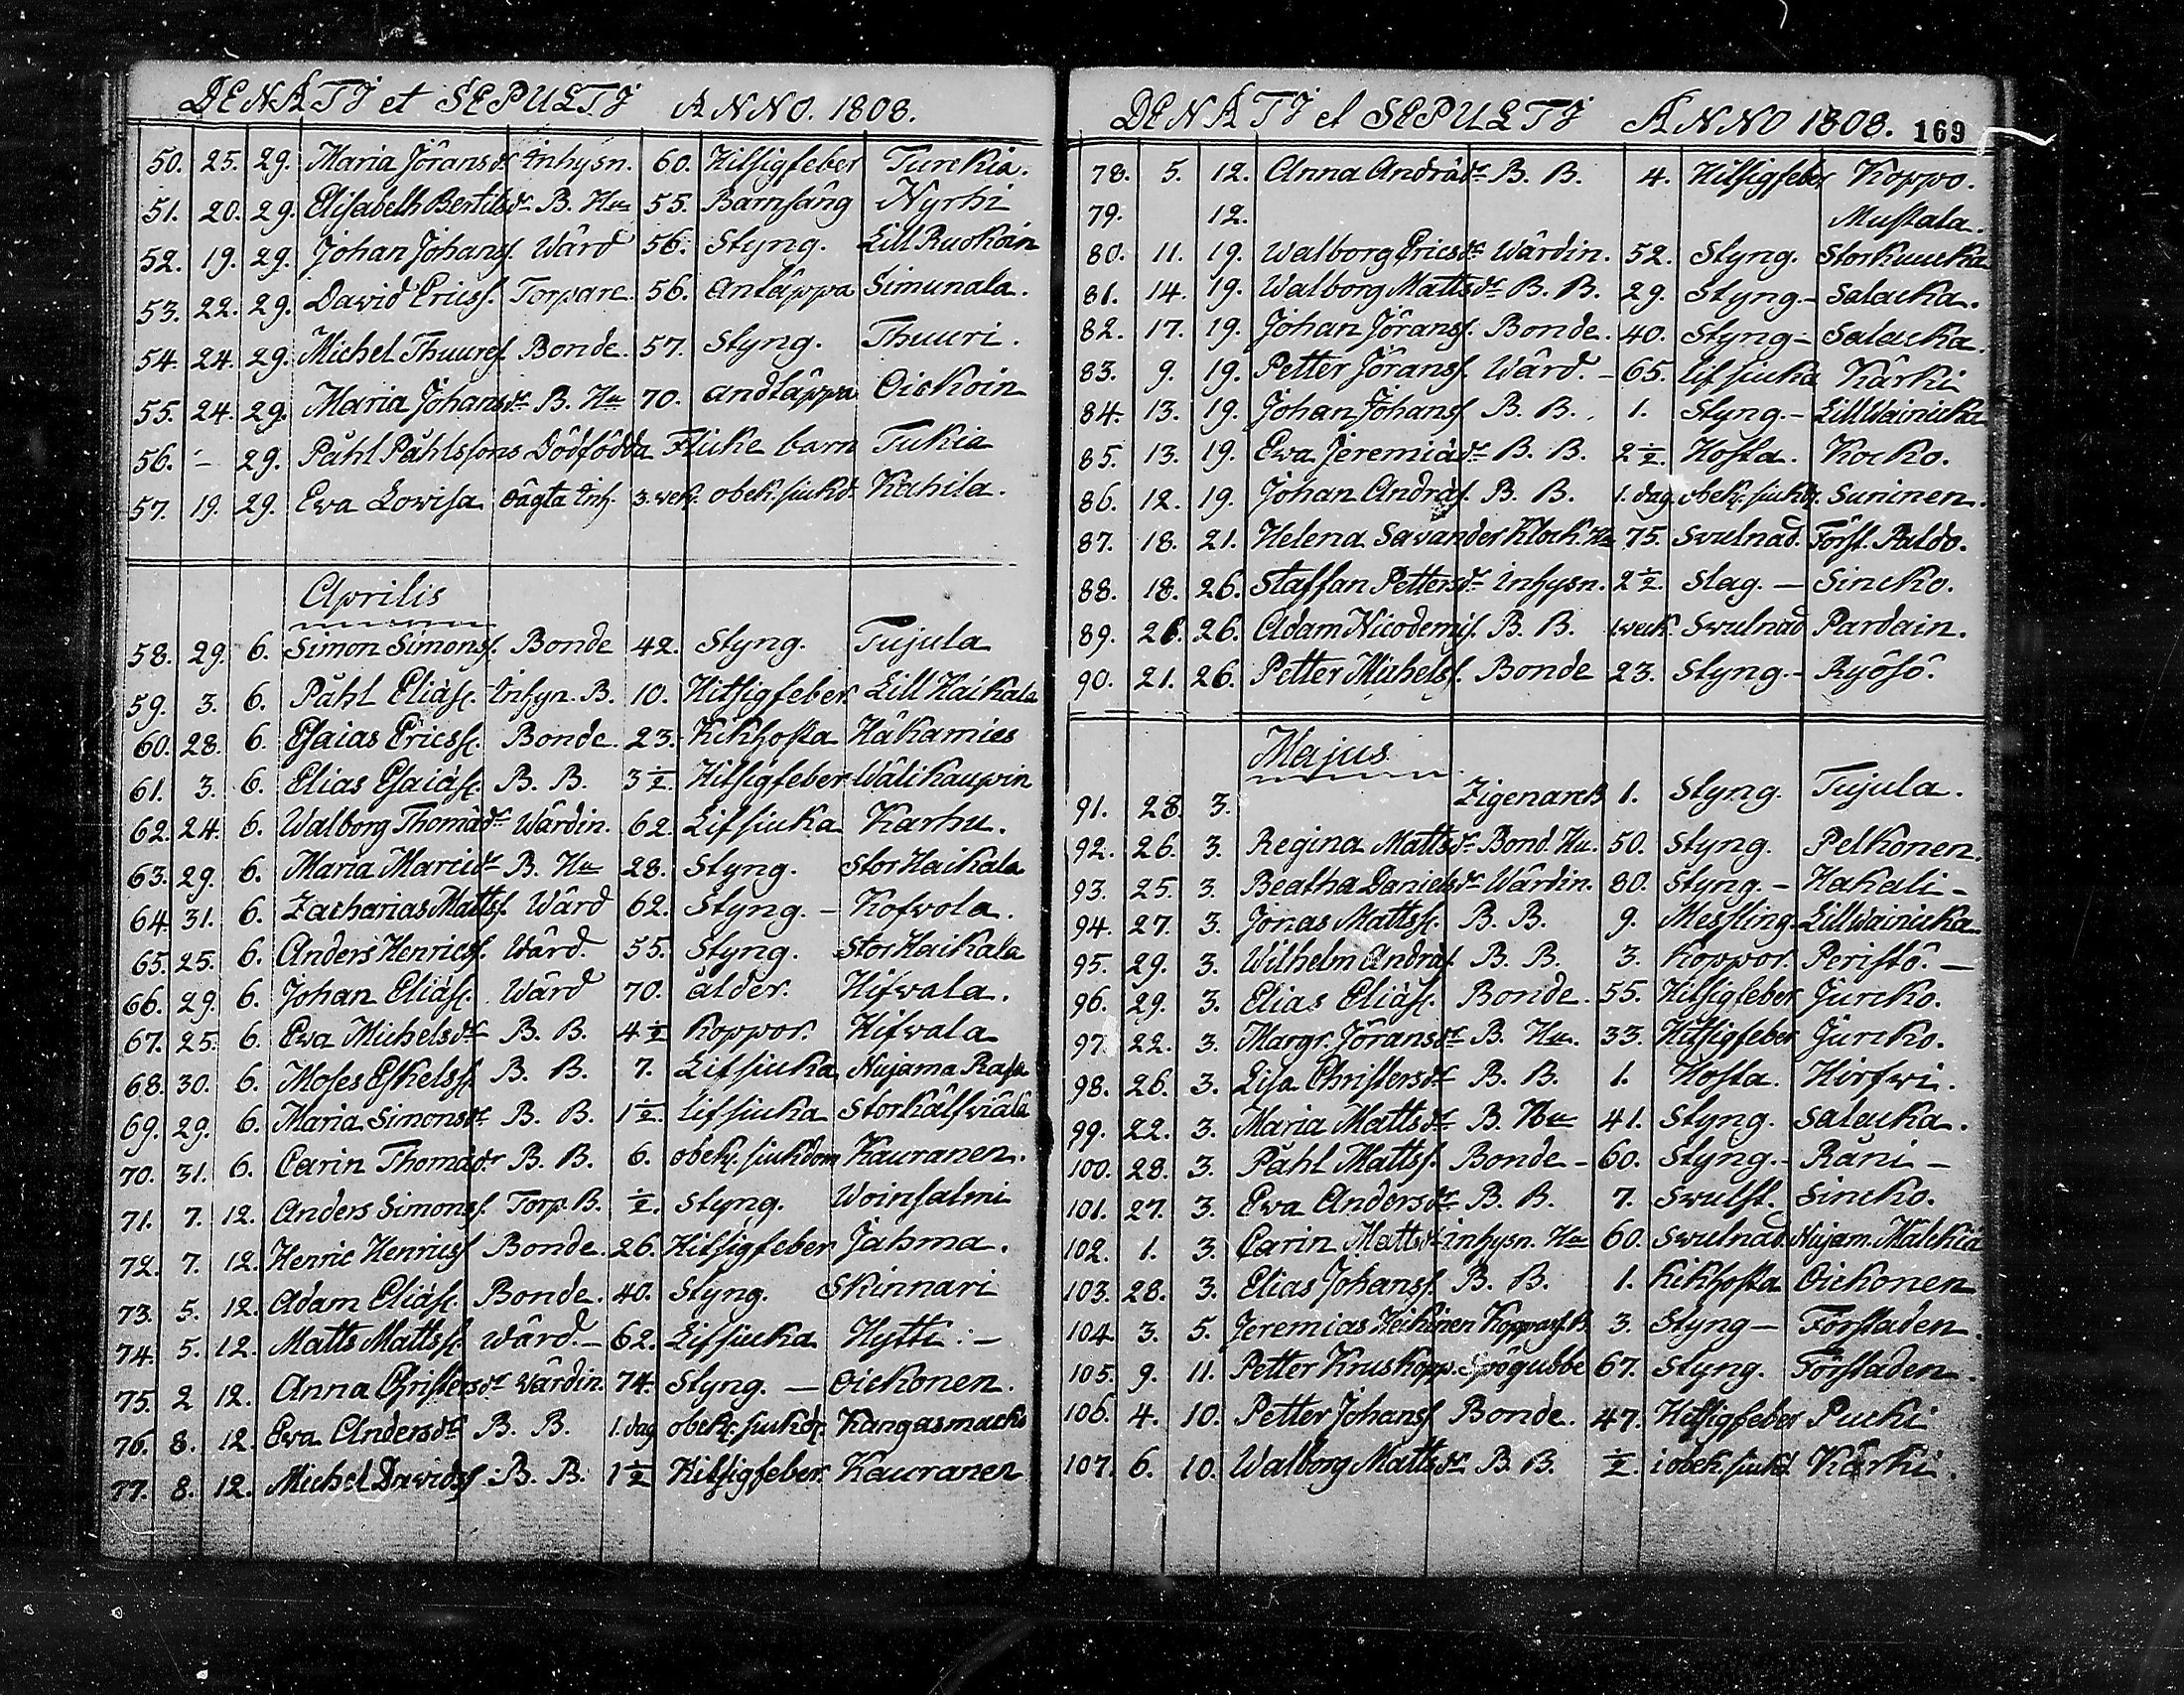 DENATJ et SEPULTJ ANNO. 1808.
50. 25. 29. Maria Jöransdr inhysn. 60. Hitsigfeber Turckia.
51. 20. 29. Elisabeth Bertilsdr B. Hu 55. Barnsäng Nyrhi
52. 19. 29. Johan Johanss. Wärd 56. Styng. Lill Ruokoin
53. 22. 29. David Ericss. Torpare. 56. Antäppa Simunala.
54. 24. 29. Michel Thuuress. Bonde. 57. Styng. Thuuri.
55. 24. 29. Maria Johansdr B. Hu 70. andtäppa Oickoin
56. - 29. Påhl Påhlssons Dödfödda Flicke barn Tukia
57. 19. 29. Eva Lowisa oägta inh. 3. veck. obek. siukd. Kahila.
Aprilis
58. 29. 6. Simon Simonss. Bonde 42. Styng. Tujula
59. 3. 6. Påhl Eliæss. inhyn. B. 10. Hitsigfeber Lill Haikala
60. 28. 6. Esaias Ericss. Bonde. 23. Kikhosta Häkamies
61. 3. 6. Elias Esaiæss. B. B. 3½. Hitsigfeber Wälikaupin
62. 24. 6. Walborg Thomædr Wärdin. 62. Lifsiuka Karhu.
63. 29. 6. Maria Marcidr B. Hu 28. Styng. Stor Haikala
64. 31. 6. Zacharias Mattss. Wärd 62. Styng. - Kofwola.
65. 25. 6. Anders Henricss. Wärd. 55. Styng. Stor Haikala
66. 29. 6. Johan Eliæss. Wärd 70. ålder. Hifwala.
67. 25. 6. Ewa Michelsdr B. B. 4½ Koppor. Hifwala
68. 30. 6. Moses Eskelss. B. B. 7. Lifsiuka Nujama Rasa
69. 29. 6. Maria Simonsdr B. B. 1½. Lifsiuka Storkälfwiälä
70. 31. 6. Carin Thomædr B. B. 6. obek. siukdom Kauranen.
71. 7. 12. Anders Simonss. Torp. B. ½. Styng. Woinsalmi
72. 7. 12. Henric Henricss. Bonde. 26. Hitsigfeber Jahma.
73. 5. 12. Adam Eliæss. Bonde. 40. Styng. Skinnari
74. 5. 12. Matts Mattss. Wärd. - 62. Lifsiuka Hytti. -
75. 2 12. Anna Christersdr Wärdin. 74. Styng. - Oickonen.
76. 8. 12. Eva Andersdr B. B. 1. dag obek. siukd. Kangasmacki
77. 8. 12. Michel Davidss. B. B. 1½ Hitsigfeber. Kauranen
DENATJ et SEPULTJ ANNO 1808. 169
78. 5. 12. Anna Andrædr B. B. 4. Hitsigfeber Koppo.
79. 12. Mustala.
80. 11. 19. Walborg Ericsdr Wärdin. 52. Styng. Storkuucka
81. 14. 19. Walborg Mattsdr B. B. 29. Styng. - Salacka.
82. 17. 19. Johan Jöranss. Bonde. 40. Styng - Salacka.
83. 9. 19. Petter Jöranss. Wärd. - 65. Lifsiuka Kärki
84. 13. 19. Johan Johanss. B. B. 1. Styng. - LillWainicka
85. 13. 19. Ewa Jeremiædr B. B. 2½. Hosta. Kocko.
86. 12. 19. Johan Andræss. B. B. 1. dag. obek. siukd. Suninen.
87. 18. 21. Helena Savander Klock. Hu 75. Swulnad. Först. Paldo.
88. 18. 26. Staffan Pettersdr inhysn. 2½. Slag. - Sincko.
89. 26. 26. Adam Nicodemis. B. B. 1 veck. Swulnad Pardain.
90. 21. 26. Petter Michelss. Bonde 23. Styng. - Ryösö.
Majus
91. 28. 3. Zigenare B 1. Styng. Tujula.
92. 26. 3. Regina Mattsdr Bond. Hu. 50. Styng. Pelkonen.
93. 25. 3. Beatha Danielsdr Wärdin. 80. Styng. - Hakali -
94. 27. 3. Jonas Mattss. B. B. 9. Messling. LillWainicka
95. 29. 3. Wilhelm Andræss. B. B. 3. Koppor. Peristö. -
96. 29. 3. Elias Eliæss. Bonde. 55. Hitsigfeber Jurcko.
97. 22. 3. Margr. Jöransdr B. Hu. 33. Hitsigfeber Jurcko.
98. 26. 3. Lisa Christersdr B. B. 1. Hosta. Hirfwi.
99. 22. 3. Maria Mattsdr B. Hu 41. Styng. Salacka.
100. 28. 3. Påhl Mattss. Bonde - 60. Styng. - Räni -
101. 27. 3. Ewa Andersdr B. B. 7. Swulst. Sincko.
102. 1. 3. Carin Mattsdr inhysn. Hu 60. Swulnad. Nujam. Malckia
103. 28. 3. Elias Johanss. B. B. 1. Kikhosta Oickonen
104. 3. 5. Jeremias Heikinen B. 3. Styng - Förstaden.
105. 9. 11. Petter Kruskopp. Spögubbe 67. Styng. Förstaden.
106. 4. 10. Petter Johanss. Bonde. 47. Hitsigfeber Pucki
107. 6. 10. Walborg Mattsdr B. B. ½. i obek. siukd Kärki.